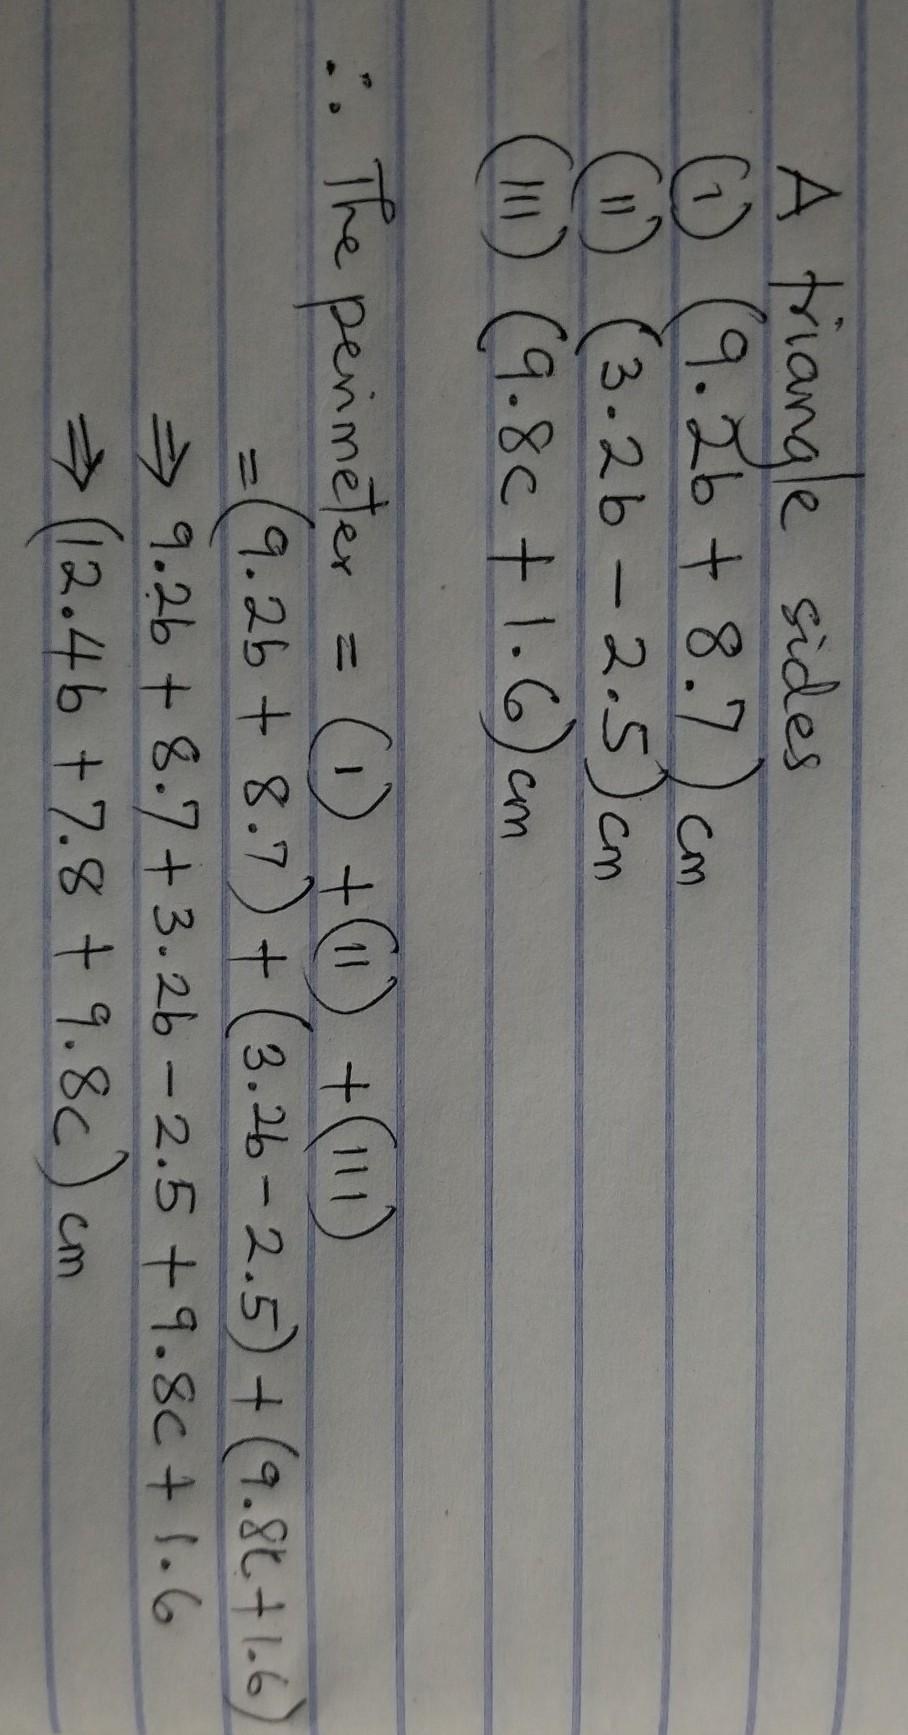 A triangle sides
(i) (9.2b + 8.7) cm
(ii) (3.2b - 2.5) cm
(iii) (9.8c + 1.6) cm
∴ The perimeter = (i) + (ii) + (iii)
= (9.2b + 8.7) + (3.2b - 2.5) + (9.8c + 1.6)
⇒ 9.2b + 8.7 + 3.2b - 2.5 + 9.8c + 1.6
⇒ (12.4b + 7.8 + 9.8c) cm